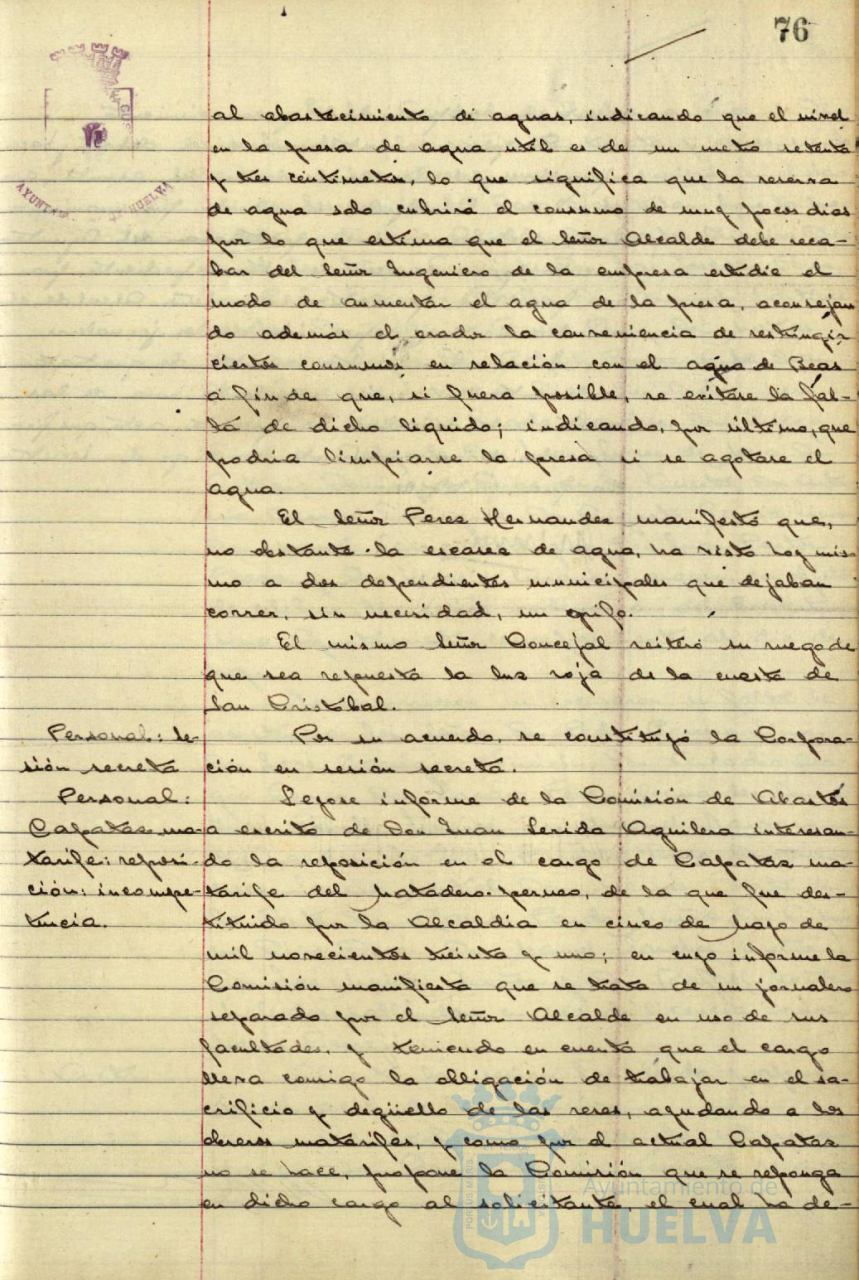 76
AYUNTA
DE HUELVA
al abastecimiento de aguas, indicando que el nivel
en la presa de agua util es de un metro setenta
y tres centimetros, lo que significa que la reserva
de agua solo cubrirá el consumo de muy pocos dias
por lo que estima que el Señor Alcalde debe reca-
bar del Señor Ingeniero de la empresa estudie el
modo de aumentar el agua de la presa, aconsejan
do además el orador la conveniencia de restingir
ciertos consumos en relación con el agua de Beas
a fin de que, si fuera posible, se evitase la fal-
ta de dicho liquido; indicando, por último, que
podria limpiarse la presa si se agotase el
agua.
El Señor Perez Hernandez manifestó que,
no obstante la escasez de agua, ha visto hoy mis
mo a dos dependientes municipales que dejaban
correr, sin necesidad, un grifo.
El mismo Señor Concejal reiteró su ruego de
que sea repuesta la luz roja de la cuesta de
San Cristobal.
Personal: se-
sión secreta
Por su acuerdo, se constituyó la Corpora-
ción en sesión secreta.
Personal:
Capataz ma-
tarife: reposi-
ción: incompe-
tencia.
Leyose informe de la Comisión de Abastos
a escrito de Don Juan Aguilera interesan-
do la reposición en el cargo de Capataz ma-
tarife del Matadero, de la que fue des-
tituido por la Alcaldia en cinco de Mayo de
mil novecientos treinta y uno; en cuyo informe la
Comisión manifiesta que se trata de un jornalero
separado por el Señor Alcalde en uso de sus
facultades, y teniendo en cuenta que el cargo
lleva consigo la obligación de trabajar en el sa-
crificio y degüello de las reses, ayudando a los
demas matarifes, y como por el actual Capataz
no se hace, propone la Comisión que se reponga
en dicho cargo al solicitante, el cual ha de-
Ayuntamiento de
HUELVA